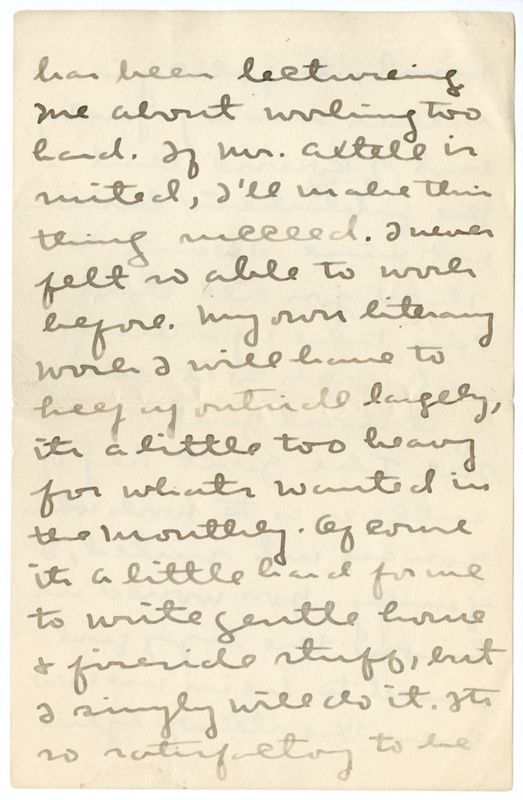 has been lecturing
me about working too
hard. If Mr. Astell is
suited, I'll make this
thing succeed. I never
felt so able to work
before. My own literary
work I will have to
keep up outside largely,
its a little too heavy
for whats wanted in
the monthly. Of course
its a little hard for me
to write gentle home
& fireside stuff, but
I simply will do it. Its
so satisfactory to be